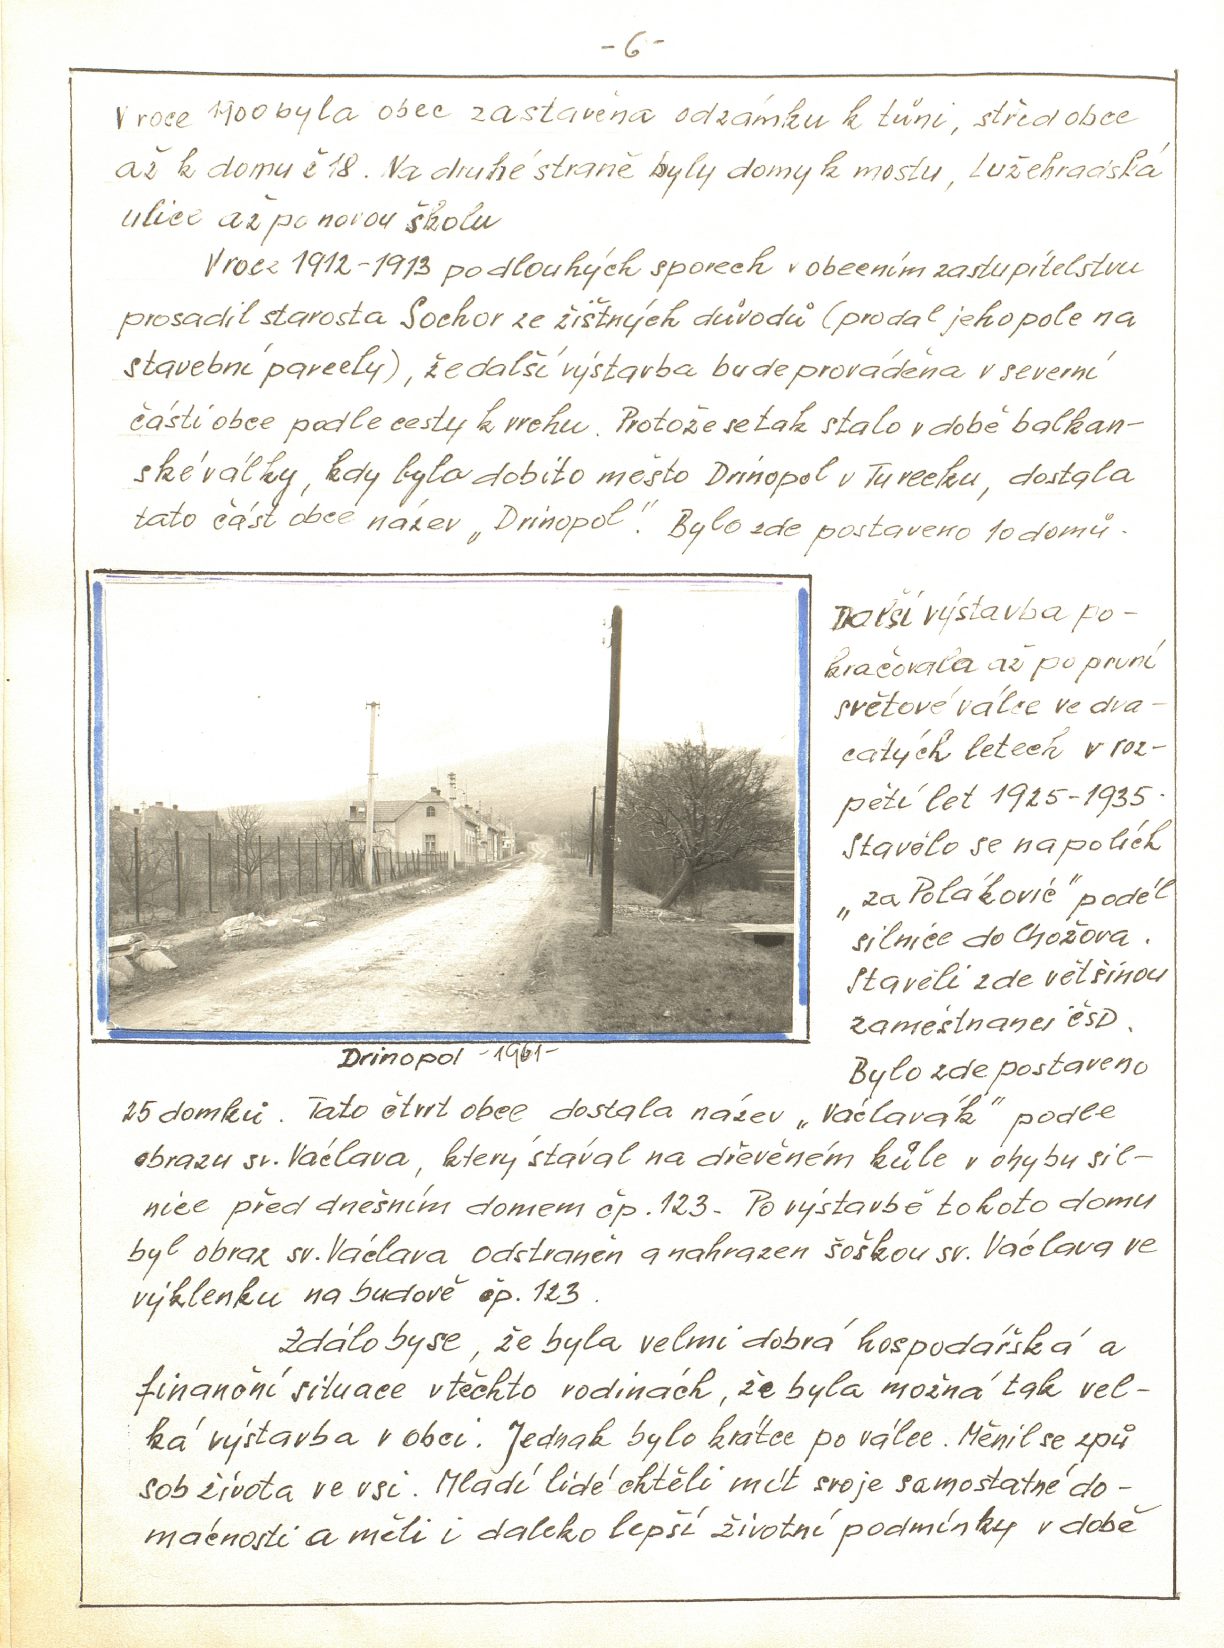 -6-
V roce 1900 byla obec zastavěna od zámku k tůni, střed obce
až k domu č 18. Na druhé straně byly domy k mostu, Lužehradská
ulice až po novou školu
V roce 1912-1913 po dlouhých sporech v obecním zastupitelstvu
prosadil starosta Sochor ze zištných důvodů (prodal jeho pole na
stavební parcely), že další výstavba bude prováděna v severní
části obce podle cesty k vrchu. Protože se tak stalo v době balkan-
ské války, kdy bylo dobito město Drinopol v Turecku, dostala
tato část obce název „Drinopol". Bylo zde postaveno 10 domů.
Další výstavba po-
kračovala až po první
světové válce ve dva-
cátých letech v roz-
pětí let 1925-1935.
Stavělo se na polích
„za Polákovic" podél
silnice do Chožova.
Stavěli zde většinou
zaměstnanci ČSD.
Bylo zde postaveno
Drinopol -1961-
25 domků. Tato čtvrt obce dostala název „Václavák" podle
obrazu sv. Václava, který stával na dřevěném kůle v ohybu sil-
nice před dnešním domem čp. 123. Po výstavbě tohoto domu
byl obraz sv. Václava odstraněn a nahrazen soškou sv. Václava ve
výklenku na budově čp. 123.
Zdálo by se, že byla velmi dobrá hospodářská a
finanční situace v těchto rodinách, že byla možná tak vel-
ká výstavba v obci. Jednak bylo krátce po válce. Měnil se způ
sob života ve vsi. Mladí lidé chtěli mít svoje samostatné do-
mácnosti a měli i daleko lepší životní podmínky v době